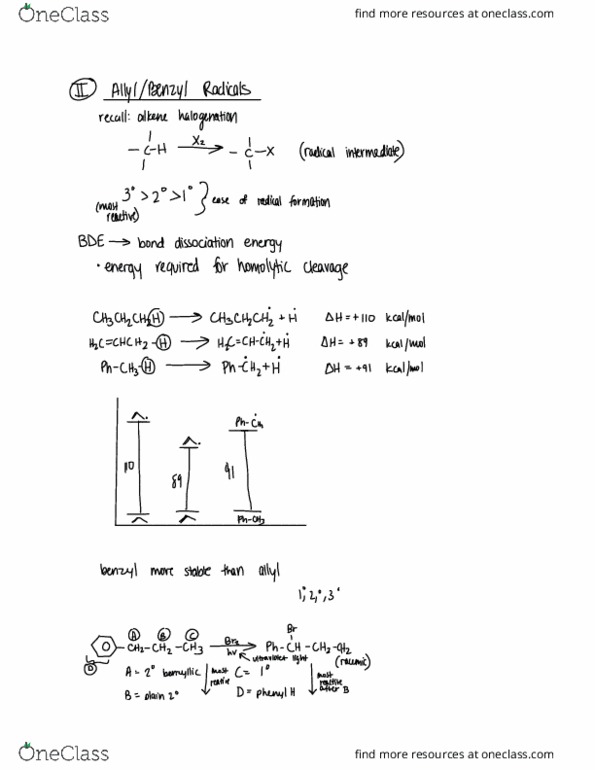 OneClass
find more resources at oneclass.com
II Allyl/Benzyl Radicals
recall: alkene halogenation
-C-H X2 -C-X (radical intermediate)
3° > 2° > 1° } ease of radical formation
(most reactive)
BDE → bond dissociation energy
• energy required for homolytic cleavage
CH3CH2CH2H → CH3CH2CH2 + H ΔH = +110 kcal/mol
H2C=CHCH2-H → H2C=CH-CH2 + H ΔH = +89 kcal/mol
Ph-CH3-H → Ph-CH2 + H ΔH = +91 kcal/mol
Ph-CH2
110
89
91
Ph-CH3
benzyl more stable than allyl
1°, 2°, 3°
A B C
Br
-CH2-CH2-CH3 Br2 Ph-CH-CH2-CH2
hv ultraviolet light (racemic)
D
A = 2° benzyllic most reactive C = 1° most reactive after B
B = plain 2° D = phenyl H
OneClass
find more resources at oneclass.com